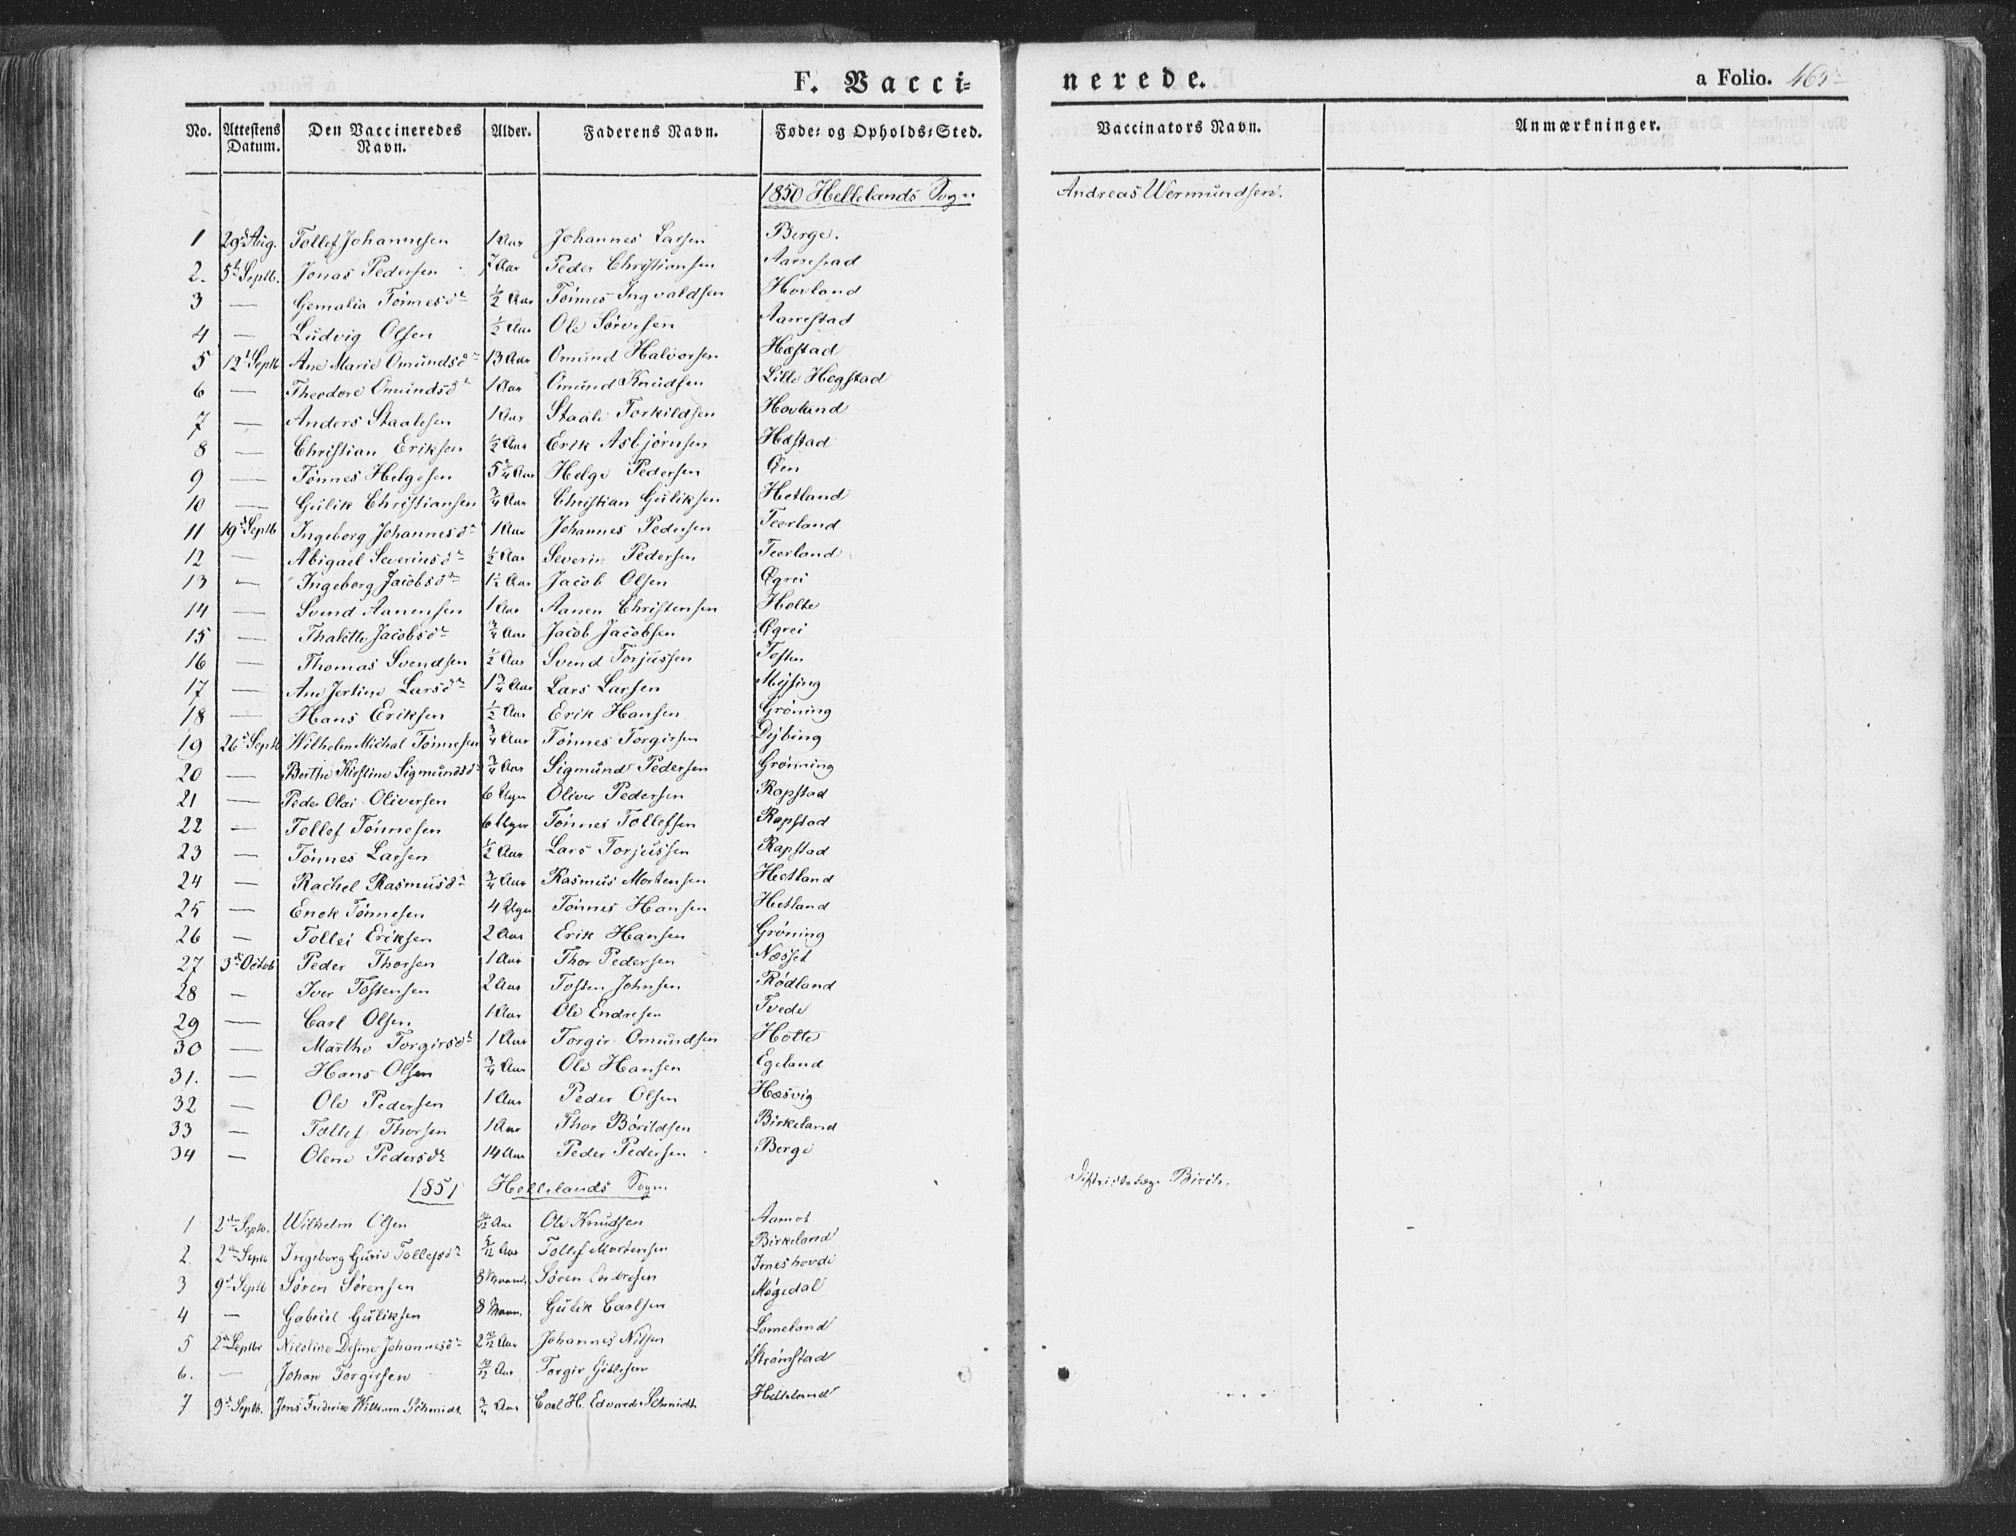 F. Vacci=
nerede.
a Folio. 465
No. Attestens Datum. Den Vaccineredes Navn. Alder. Faderens Navn. Føde= og Opholds=Sted. Vaccinators Navn. Anmærkninger.
1850 Hellelands Sogn Andreas Wermundsen.
1 29 Aug. Tollef Johannesen 1 Aar Johannes Larsen Berge.
2. 5t Septb. Jonas Pedersen Aar Peder Christiansen Aarrestad
3 — Gemalia Tönnesdr ½ Aar Tönnes Ingvaldsen Hovland
4 — Ludvig Olsen ½ Aar Ole Sörensen Aarrestad
5 12t Septb Ane Marie Omundsdr 13 Aar Omund Halvorsen Hæstad
6 — Theodore Omundsdr 1 Aar Omund Knudsen Lille Hegstad
7 — Anders Staalesen 1 Aar Staale Torkildsen Hovland
8 — Christian Eriksen ½ Aar Erik Asbjörnsen Hæstad
9 — Tönnes Helgesen 5¼ Aar Helge Pedersen Øen
10 — Gulik Christiansen ¾ Aar Christian Guliksen Hetland
11 19 Septb Ingeborg Johannesdr 1 Aar Johannes Pedersen Teorland
12 — Abigael Severinsdr ½ Aar Severin Pedersen Teorland
13 — Ingeborg Jacobsdr 1½ Aar Jacob Olsen Øgrei
14 — Svend Aanensen 1 Aar Aanen Christensen Holte
15 — Thalette Jacobsdr ¾ Aar Jacob Jacobsen Øgrei
16 — Thomas Svendsen ½ Aar Svend Torjussen Tosten
17 — Ane Jertine Larsdr 1¾ Aar Lars Larsen Mysing
18 — Hans Eriksen ½ Aar Erik Hansen Gröning
19 26 Septb Wilhelm Michal Tönnesen ¾ Aar Tönnes Torgirsen Dybing
20 — Berthe Kirstine Sigmundsdr ¾ Aar Sigmund Pedersen Grönning
21 — Peder Olai Oliversen 6 Uger Oliver Pedersen Rapstad
22 — Tollef Tönnesen 6 Uger Tönnes Tollefsen Rapstad
23 — Tönnes Larsen ½ Aar Lars Torjussen Rapstad
24 — Rachel Rasmusdr ¾ Aar Rasmus Mortensen Hetland
25 — Enok Tönnesen 4 Uger Tönnes Hansen Hetland
26 — Tollei Eriksen 2 Aar Erik Hansen Gröning
27 3 Octob Peder Thorsen 1 Aar Thor Pedersen Næsset
28 — Iver Tostensen 2 Aar Tosten Johnsen Rödland
29 — Carl Olsen 1 Aar Ole Endresen Tvede
30 — Marthe Torgirsdr 1 Aar Torgir Omundsen Holte
31. — Hans Olsen ¾ Aar Ole Hansen Egeland
32 — Ole Pedersen 1 Aar Peder Olsen Hæsvig
33 — Tollef Thorsen 1 Aar Thor Börildsen Birkeland
34 — Olene Pedersdr 14 Aar Peder Pedersen Berge
1851 Hellelands Sogn Districtslæge Birch.
1 2den Septb. Wilhelm Olsen Aar Ole Knudsen Aamot
2. 2den Septb Ingeborg Gurie Tollefsdr Aar Tollef Mortensen Birkeland
3 9 Septb Sören Sörensen 8 Maan. Sören Endresen
4 — Gabriel Guliksen 8 Maan. Gulik Carlsen Møgedal
5 2den Septbr Nicoline Desine Johannesdr 2 Aar Johannes Nilsen Lomeland
6. — Johan Torgirsen 10/12 Aar Torgir Strömstad
7 9 Septb. Jens Frederik William Schmidt ¾ Aar Carl H. Edvard Schmidt Helleland